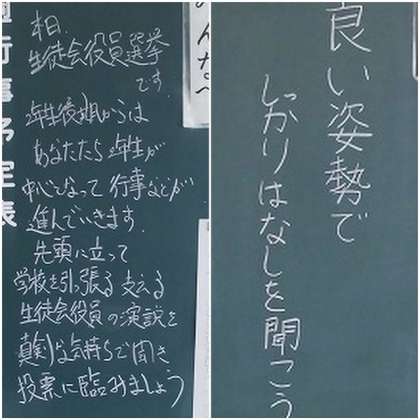 行事予定表
みんなへ
本日、
生徒会役員選挙
です
2年生後期からは
あなたたち2年生が
中心となって行事などが
進んでいきます。
先頭に立って
学校を引っ張る支える
生徒会役員の演説を
真剣な気持ちで聞き
投票に臨みましょう
良い姿勢で
しっかりはなしを聞こう